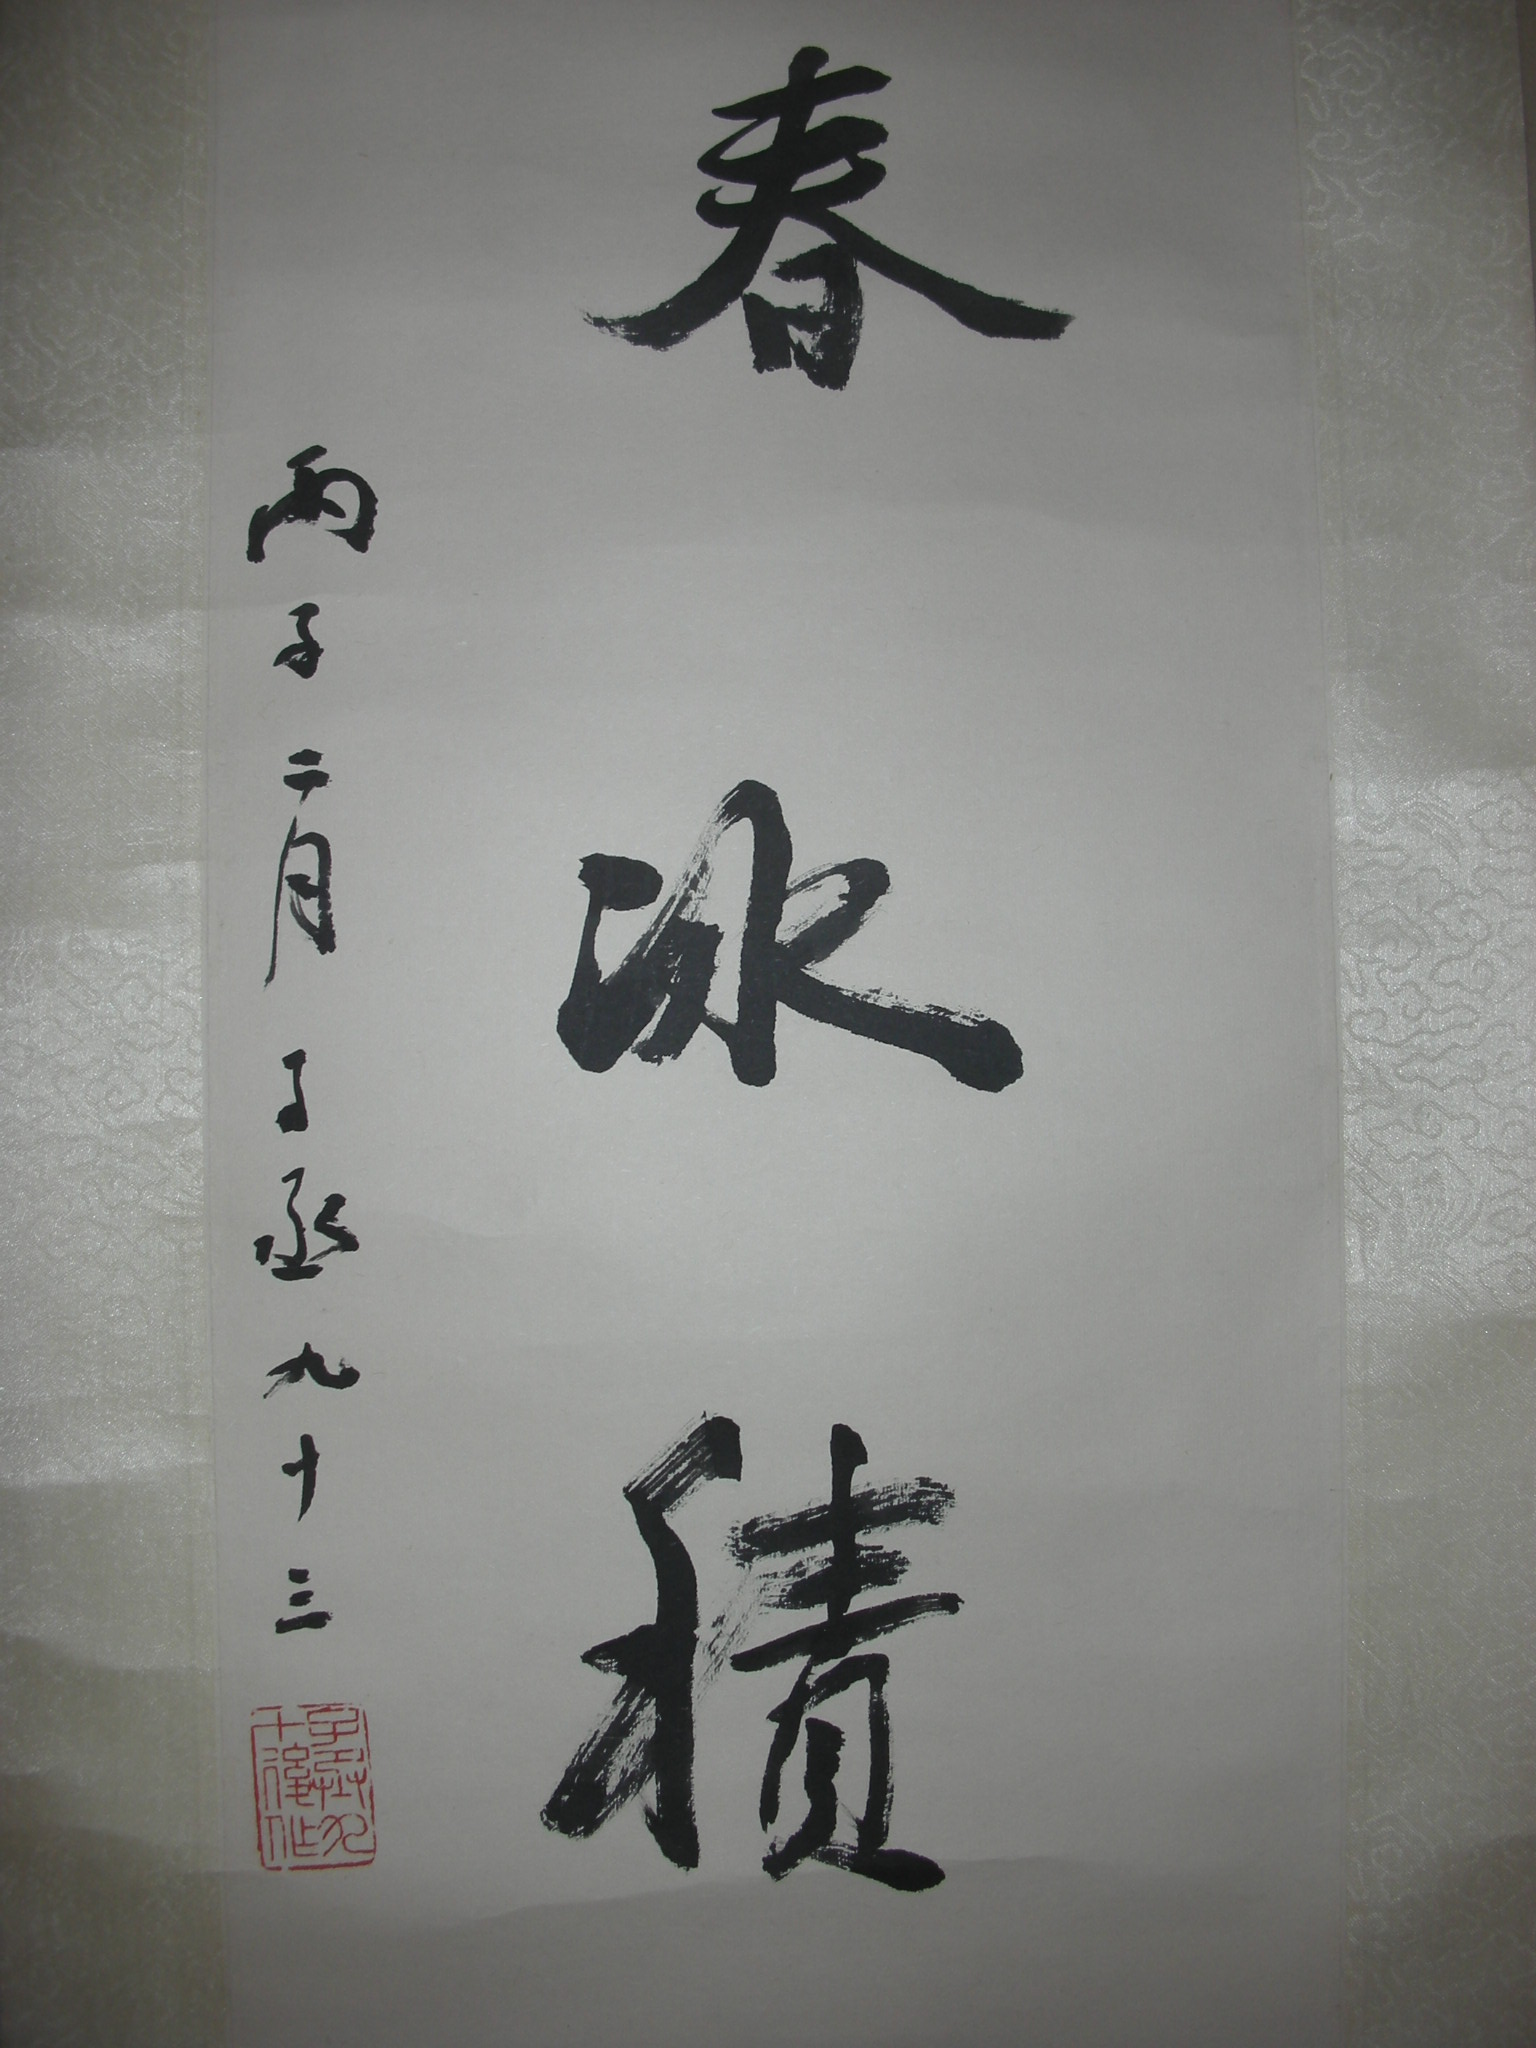 春冰積
丙子二月子丞九十三